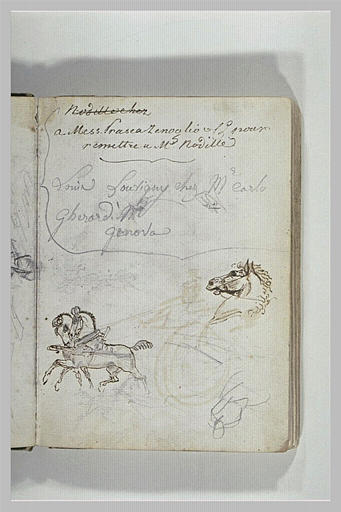 Nodille chez
a Mess. Frasca Zenoglio & Cº pour
remettre a Mr Nodille
Louvigny chez Mr Carlo
Gherardi
genova